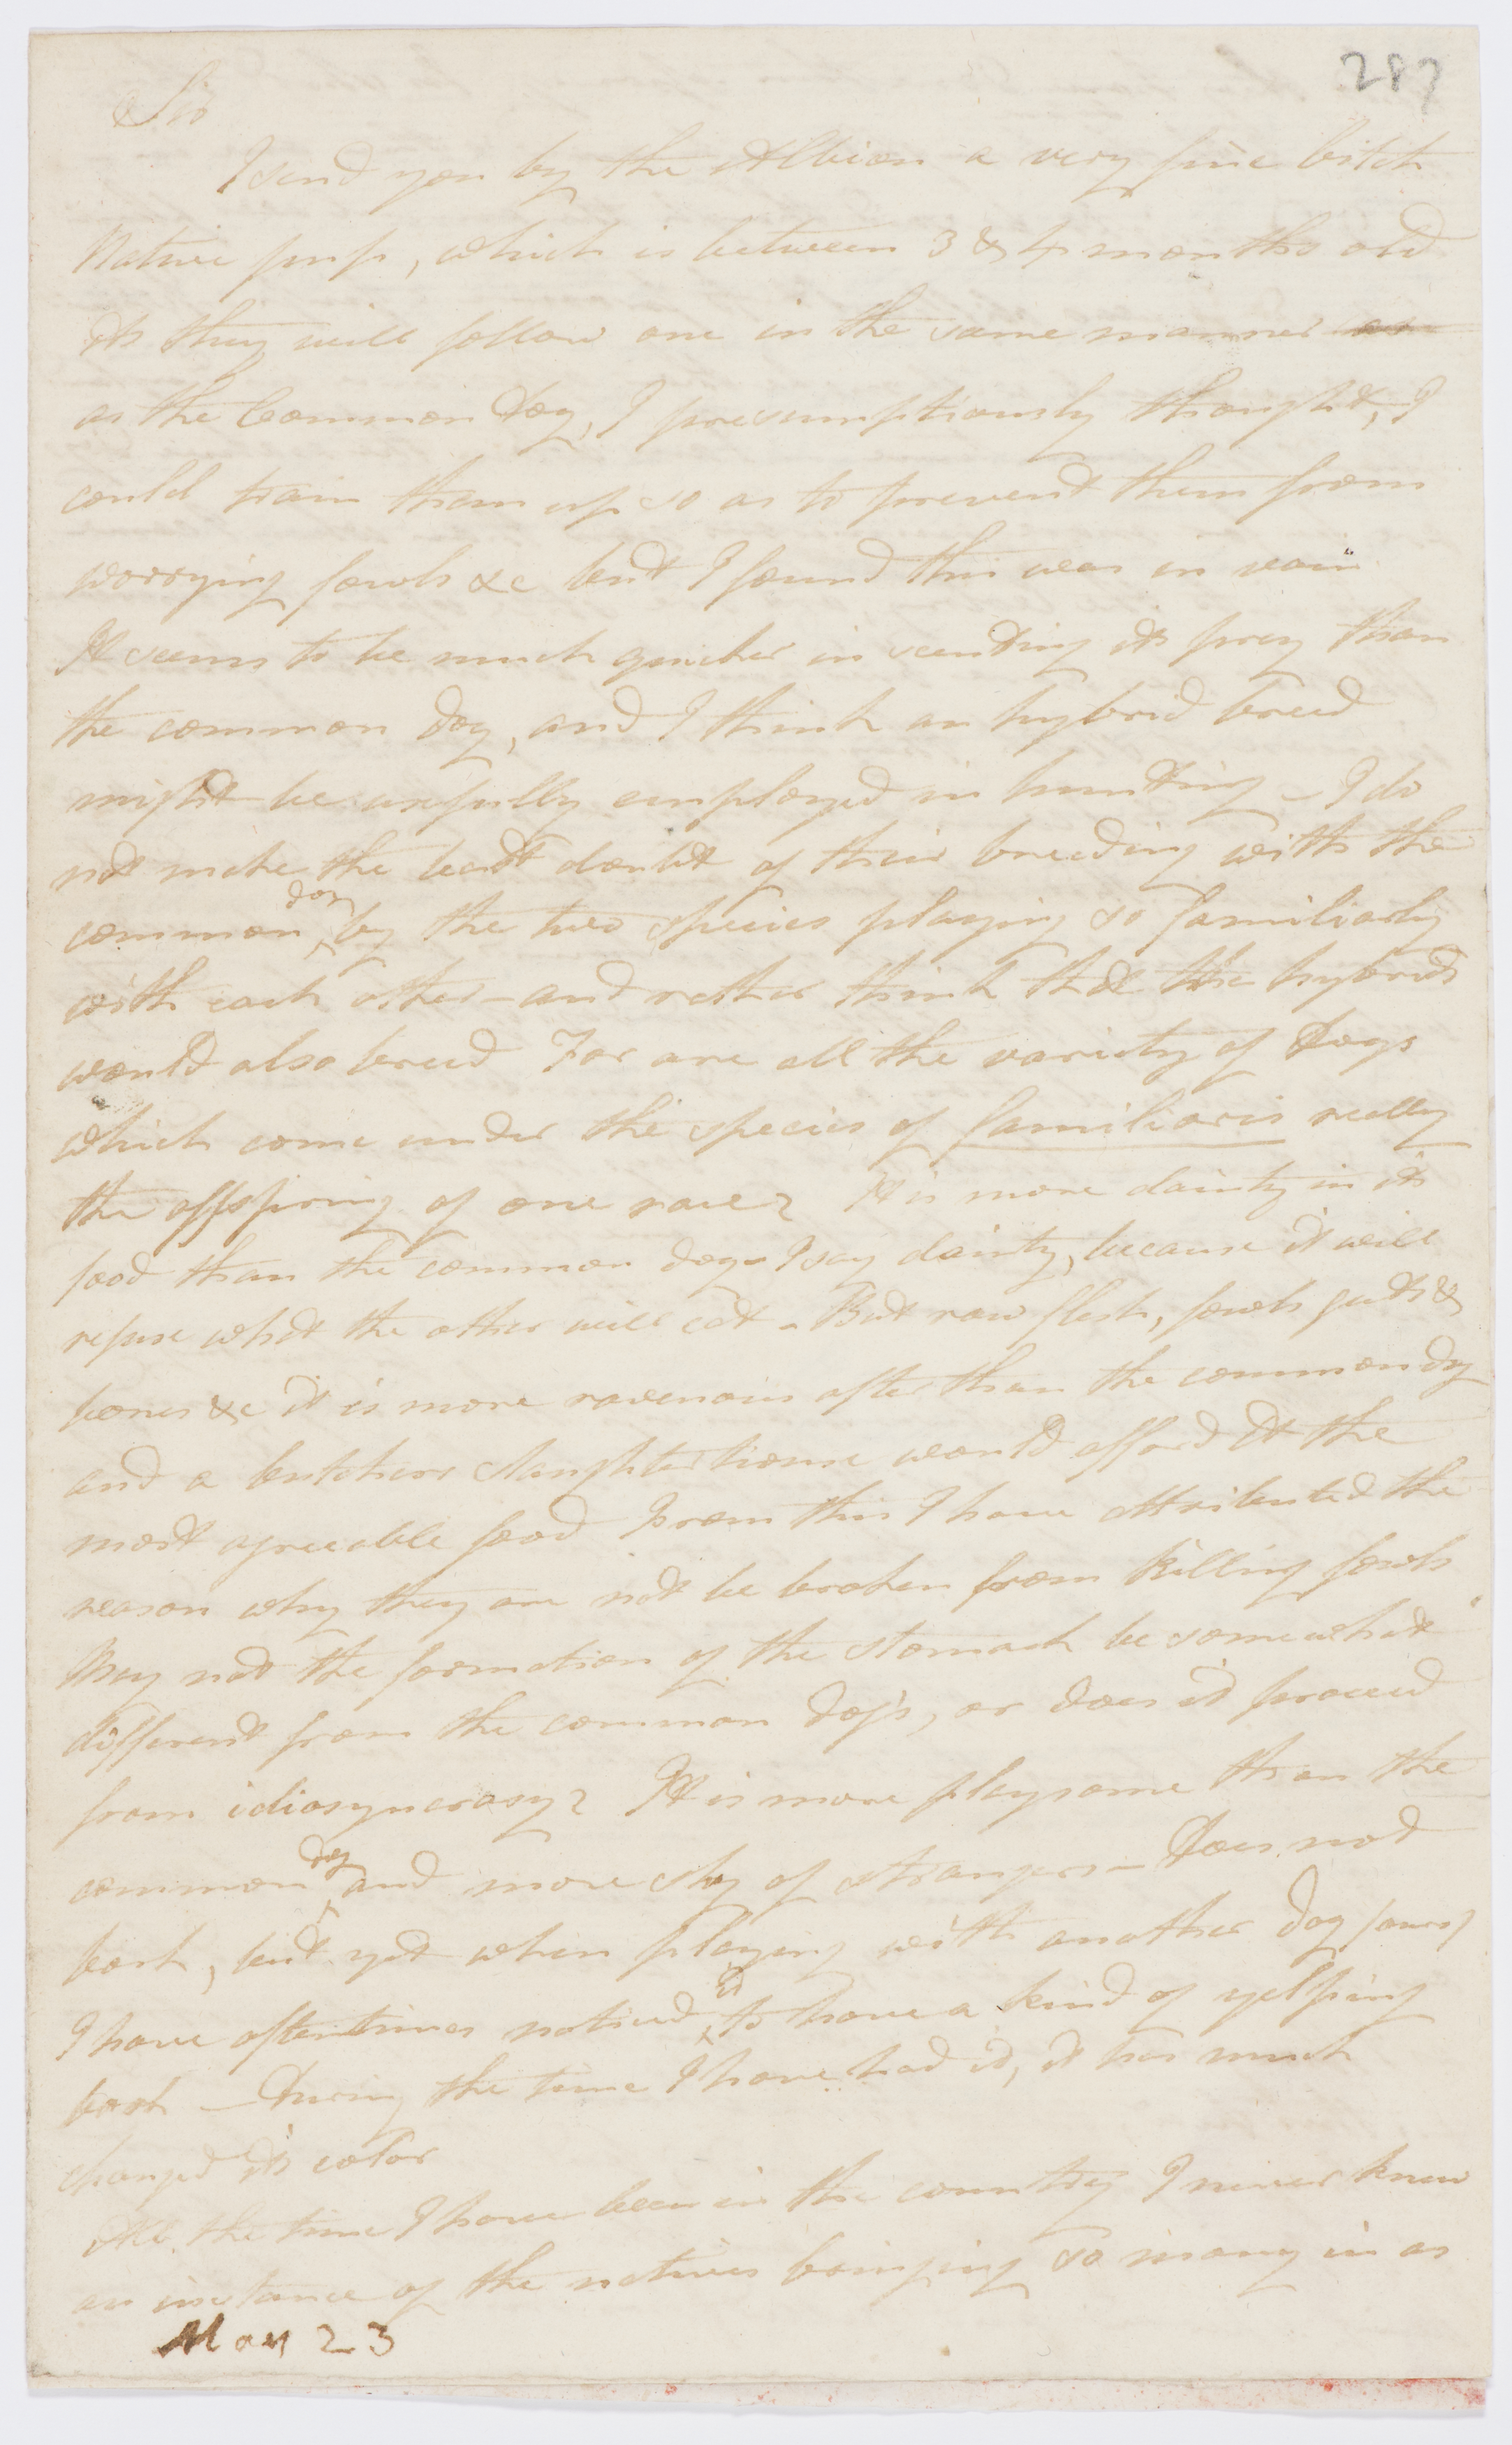 287
Sir
I send you by the Albion a very fine bitch
Native pup, which is between 3 & 4 months old
As they will follow one in the same manner as
as the Common Dog, I presumptiously thought, I
could train them up so as to prevent them from
worrying fowls &c but I found this was in vain
It seems to be much quicker in scenting its prey than
the common dog, and I think an hybrid breed
might be usefully employed in hunting - I do
not make the least doubt of their breeding with the
common dog by the two species playing so familiarly
with each other - and rather think that the hybrids
would also breed For are all the variety of Dogs
which come under the species of familiaris really
the offspring of one race? It is more dainty in its
food than the common dog - I say dainty, because it will
refuse what the other will eat - But raw flesh, fowls guts &
bones &c it is more ravenous after than the common dog
and a butchers slaughterhouse would afford it the
most agreeable food From this I have attributed the
reason why they are not be broken from killing fowls
May not the formation of the stomach be somewhat
different from the common dog's, or does it proceed
from idiosyncrasy? It is more playsome than the
common dog and more shy of strangers - Does not
bark, but yet when playing with another dog
I have oftentimes noticed it to have a kind of yelping
bark - During the time I have had it, it has much
changed its color
All the time I have been in the country I never knew
an instance of the natives bringing so many in as
May 23